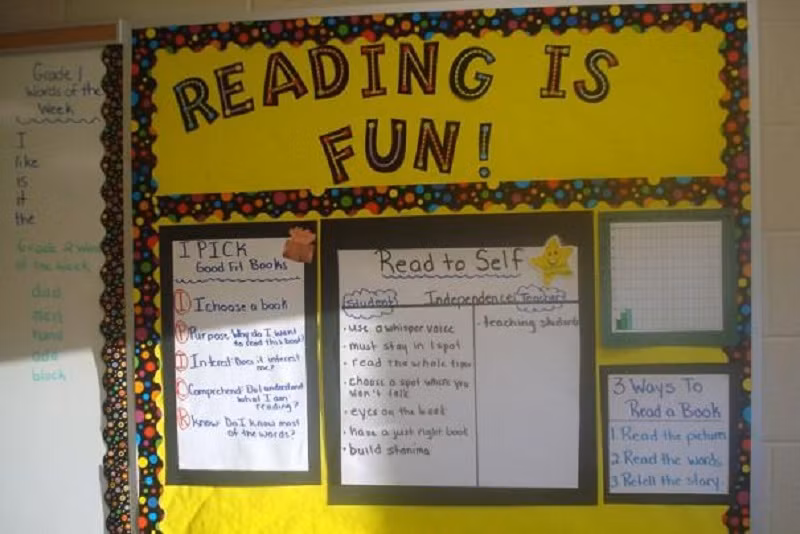 Grade 1
Words of the
Week
I
like
is
it
the
Grade 2 Words
of the Week
block
READING IS
FUN!
I PICK
Good Fit Books
I I choose a book
P Purpose Why do I want
to read this book?
I Interest Does it interest
me?
C Comprehend Do I understand
what I am
reading?
K Know Do I know most
of the words?
Read to Self
Student Independence Teacher
• use a whisper voice
• must stay in 1 spot
• read the whole time
• choose a spot where you
won't talk
• eyes on the book
• have a just right book
• build stamina
• teaching students
3 Ways To
Read a Book
1 Read the pictures
2 Read the words
3 Retell the story